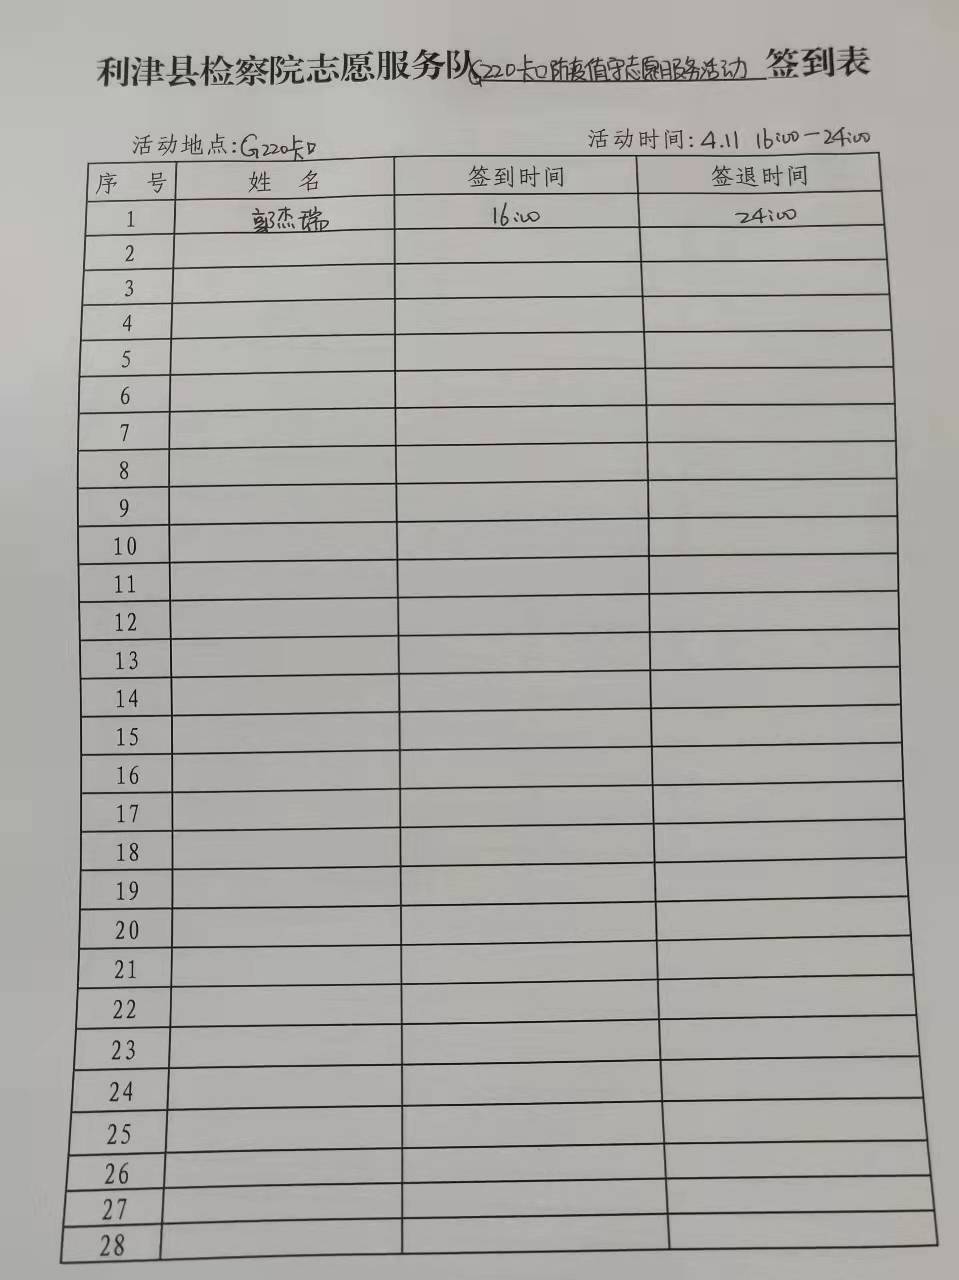 利津县检察院志愿服务队G220卡口防疫值守志愿服务活动签到表
活动地点:G220卡口 活动时间:4.11 16:00-24:00
序 号 姓 名 签到时间 签退时间
1 郭杰瑞 16:00 24:00
2
3
4
5
6
7
8
9
10
11
12
13
14
15
16
17
18
19
20
21
22
23
24
25
26
27
28